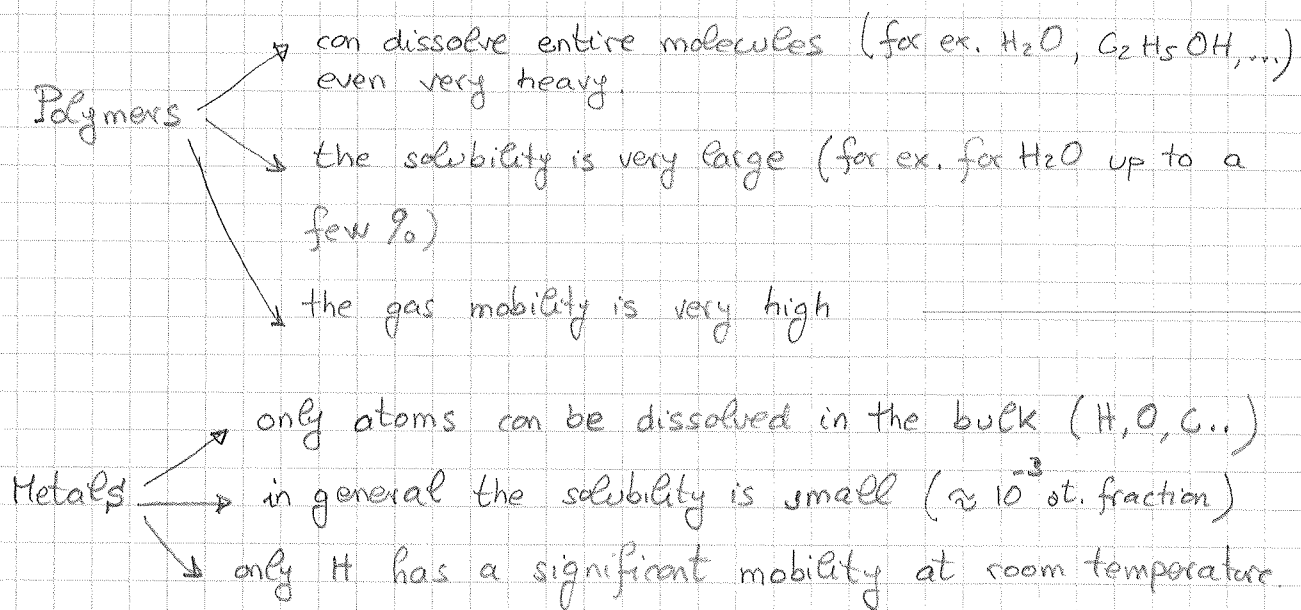 can dissolve entire molecules (for ex. H₂O, C₂H₅OH,...)
even very heavy.
Polymers
the solubility is very large (for ex. for H₂O up to a
few %)
the gas mobility is very high
only atoms can be dissolved in the bulk (H,O,C..)
Metals
in general the solubility is small (≈ 10⁻³ at. fraction)
only H has a significant mobility at room temperature.